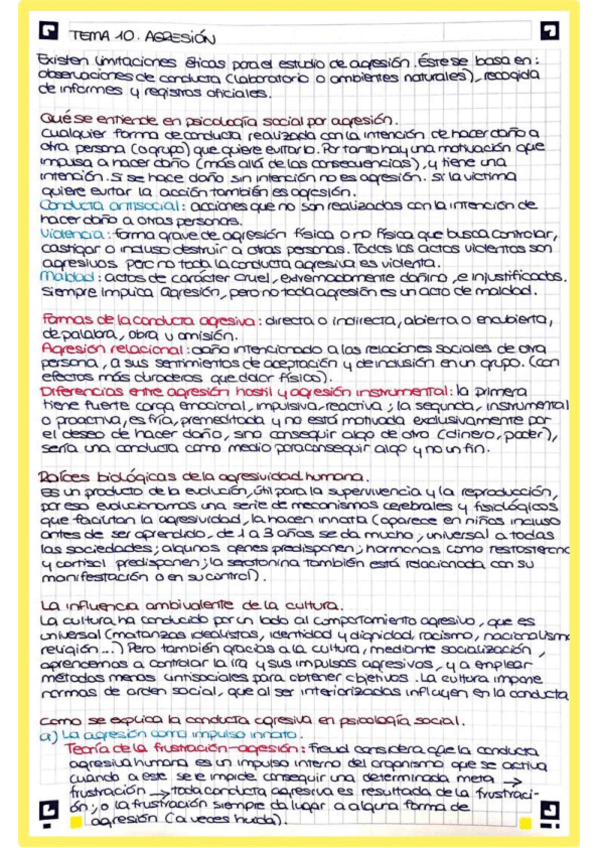 TEMA 10. AGRESIÓN
Existen limitaciones éticas para el estudio de agresión. Éste se basa en:
observaciones de conducta (laboratorio o ambientes naturales), recogida
de informes y registros oficiales.
Qué se entiende en psicología social por agresión.
Cualquier forma de conducta realizada con la intención de hacer daño a
otra persona (o grupo) que quiere evitarlo. Por tanto hay una motivación que
impulsa a hacer daño (más allá de las consecuencias), y tiene una
intención. Si se hace daño sin intención no es agresión. Si la víctima
quiere evitar la acción también es agresión.
Conducta antisocial: acciones que no son realizadas con la intención de
hacer daño a otras personas.
Violencia: forma grave de agresión física o no física que busca controlar,
castigar o incluso destruir a otras personas. Todos los actos violentos son
agresivos pero no toda la conducta agresiva es violenta.
Maldad: actos de carácter cruel, extremadamente dañino, e injustificados.
Siempre implica agresión, pero no toda agresión es un acto de maldad.
Formas de la conducta agresiva: directa o indirecta, abierta o encubierta,
de palabra, obra u omisión.
Agresión relacional: daño intencionado a las relaciones sociales de otra
persona, a sus sentimientos de aceptación y de inclusión en un grupo. (con
efectos más duraderos que dolor físico).
Diferencias entre agresión hostil y agresión instrumental: la primera
tiene fuerte carga emocional, impulsiva, reactiva; la segunda, instrumental
o proactiva, es fría, premeditada y no está motivada exclusivamente por
el deseo de hacer daño, sino conseguir algo de otro (dinero, poder),
sería una conducta como medio para conseguir algo y no un fin.
Raíces biológicas de la agresividad humana.
Es un producto de la evolución, útil para la supervivencia y la reproducción,
por eso evolucionamos una serie de mecanismos cerebrales y fisiológicos
que facilitan la agresividad, la hacen innata (aparece en niños incluso
antes de ser aprendido, de 1 a 3 años se da mucho, universal a todas
las sociedades; algunos genes predisponen; hormonas como testosterona
y cortisol predisponen; la serotonina también está relacionada con su
manifestación o en su control).
La influencia ambivalente de la cultura.
La cultura ha conducido por un lado al comportamiento agresivo, que es
universal (matanzas idealistas, identidad y dignidad, racismo, nacionalismo
religión...) Pero también gracias a la cultura, mediante socialización,
aprendemos a controlar la ira y sus impulsos agresivos, y a emplear
métodos menos antisociales para obtener objetivos. La cultura impone
normas de orden social, que al ser interiorizadas influyen en la conducta
Como se explica la conducta agresiva en psicología social.
a) La agresión como impulso innato.
Teoría de la frustración-agresión: Freud considera que la conducta
agresiva humana es un impulso interno del organismo que se activa
cuando a este se le impide conseguir una determinada meta →
frustración → toda conducta agresiva es resultada de la frustraci-
ón; o la frustración siempre da lugar a alguna forma de
agresión (a veces huida).